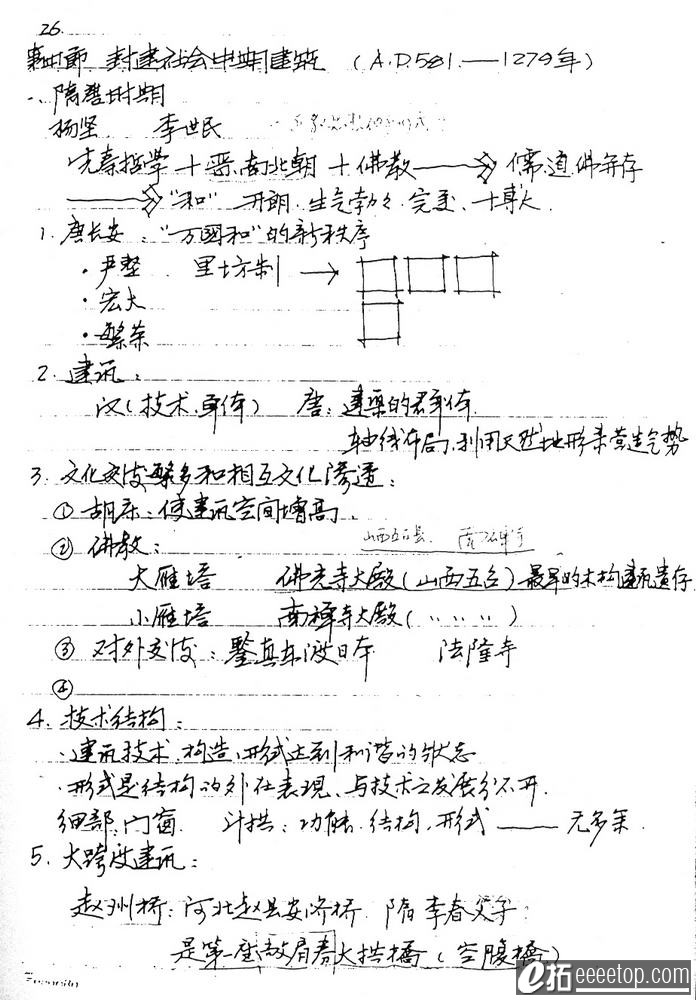 26.
第四节 封建社会中期建筑 (A.D.581.——1279年)
一. 隋唐时期
杨坚 李世民
先秦哲学＋晋.南北朝＋佛教——→ 儒.道.佛并存
——→“和” 开朗.生气勃勃.完美.博大
1.唐长安：“万国和”的新秩序
·严整 里坊制 →
·宏大
·繁荣
2.建筑：
汉(技术.单体) 唐：建筑的群体
轴线布局,利用天然地形来营造气势
3.文化交流繁多和相互文化渗透：
①胡床：使建筑空间增高.
②佛教： 山西五台县
大雁塔 佛光寺大殿(山西五台)最早的木构建筑遗存
小雁塔 南禅寺大殿(〃〃〃〃)
③对外交流：鑒真东渡日本 法隆寺
④
4.技术结构：
·建筑技术.构造,形式达到和谐的状态
·形式是结构的外在表现、与技术之发展分不开.
细部.门窗. 斗拱：功能.结构.形式——无多余.
5.大跨度建筑：
赵州桥：河北赵县安济桥 隋 李春父子
是第一座敞肩券大拱橋(空腹橋)
e拓 eeeetop.com